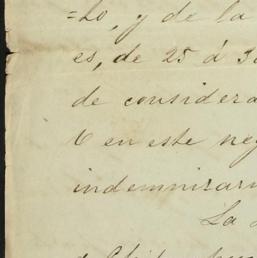 =lo, y de la
es, de 25 á 30
de considera
en este neg
indemnizarn
La